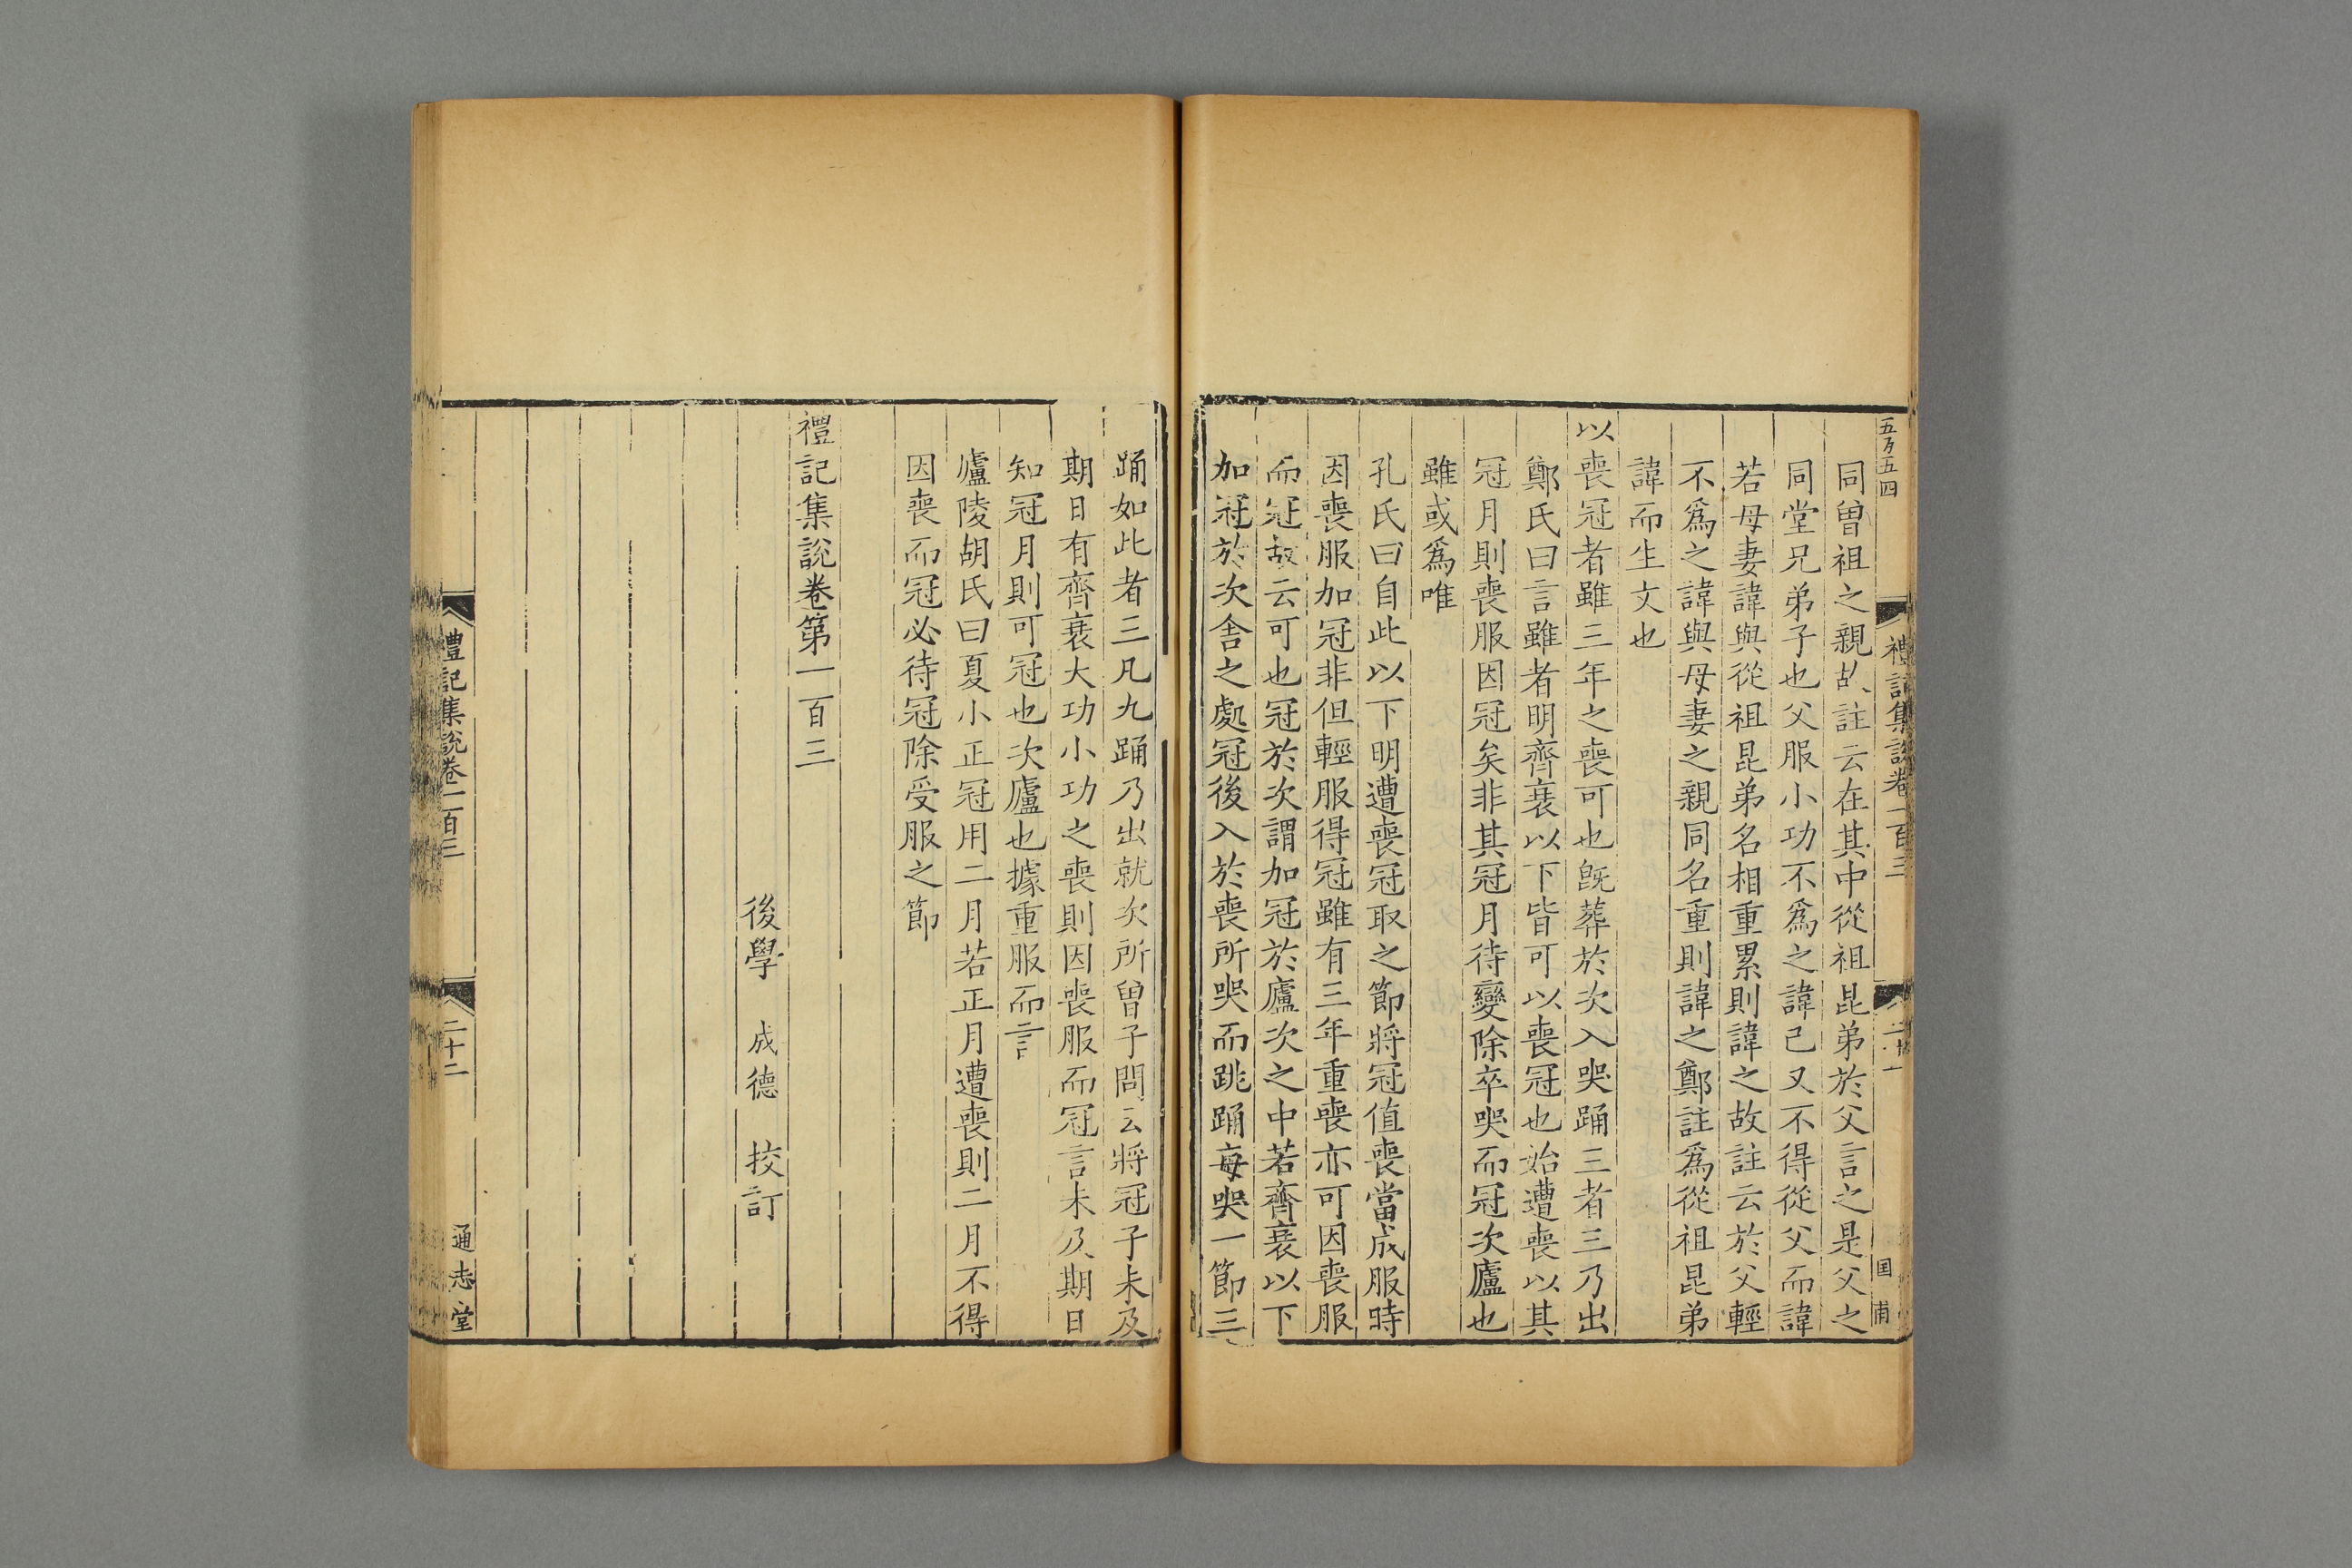 五百五四
禮記集說卷一百三
同曽祖之親故註云在其中從祖昆弟於父言之是父之
同堂兄弟子也父服小功不爲之諱己又不得從父而諱
若母妻諱與從祖昆弟名相重累則諱之故註云於父輕
不爲之諱與母妻之親同名重則諱之鄭註爲從祖昆弟
諱而生文也
以喪冠者雖三年之喪可也旣葬於次入哭踊三者三乃出
鄭氏曰言雖者明齊衰以下皆可以喪冠也始遭喪以其
冠月則喪服因冠矣非其冠月待變除卒哭而冠次廬也
雖或爲唯
孔氏曰自此以下明遭喪冠取之節將冠值喪當成服時
因喪服加冠非但輕服得冠雖有三年重喪亦可因喪服
而冠故云可也冠於次謂加冠於廬次之中若齊衰以下
加冠於次舍之處冠後入於喪所哭而跳踊每哭一節三
踊如此者三凡九踊乃出就次所曽子問云將冠子未及
期日有齊衰大功小功之喪則因喪服而冠言未及期日
知冠月則可冠也次廬也據重服而言
廬陵胡氏曰夏小正冠用二月若正月遭喪則二月不得
因喪而冠必待冠除受服之節
禮記集說卷第一百三
後學 成德 挍訂
禮記集說卷一百三
二十二
通志堂